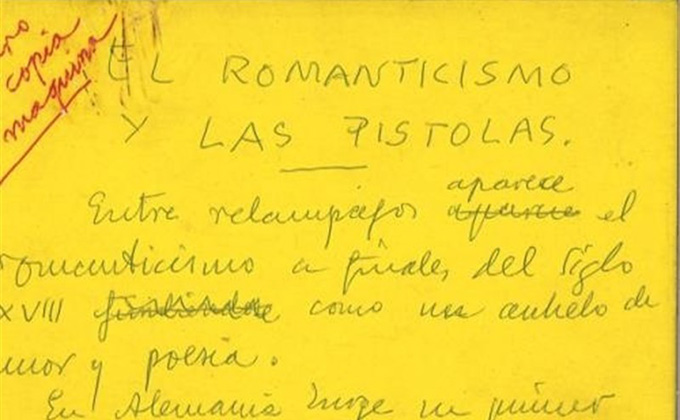 copia
maquina
EL ROMANTICISMO
Y LAS PISTOLAS.
Entre relampagos aparece el
romanticismo a finales del siglo
XVIII como un anhelo de
amor y poesia.
En Alemania surge un primer